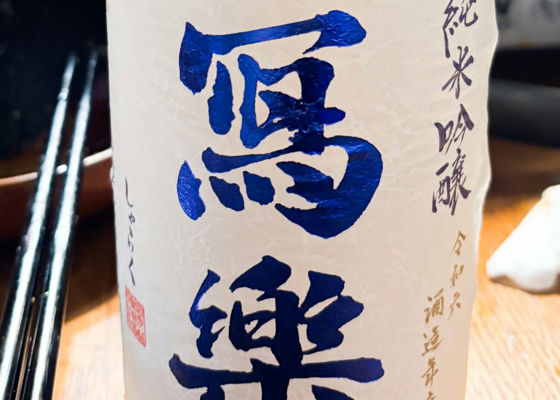 純米吟醸
令和六
酒造年
寫樂
しゃらく